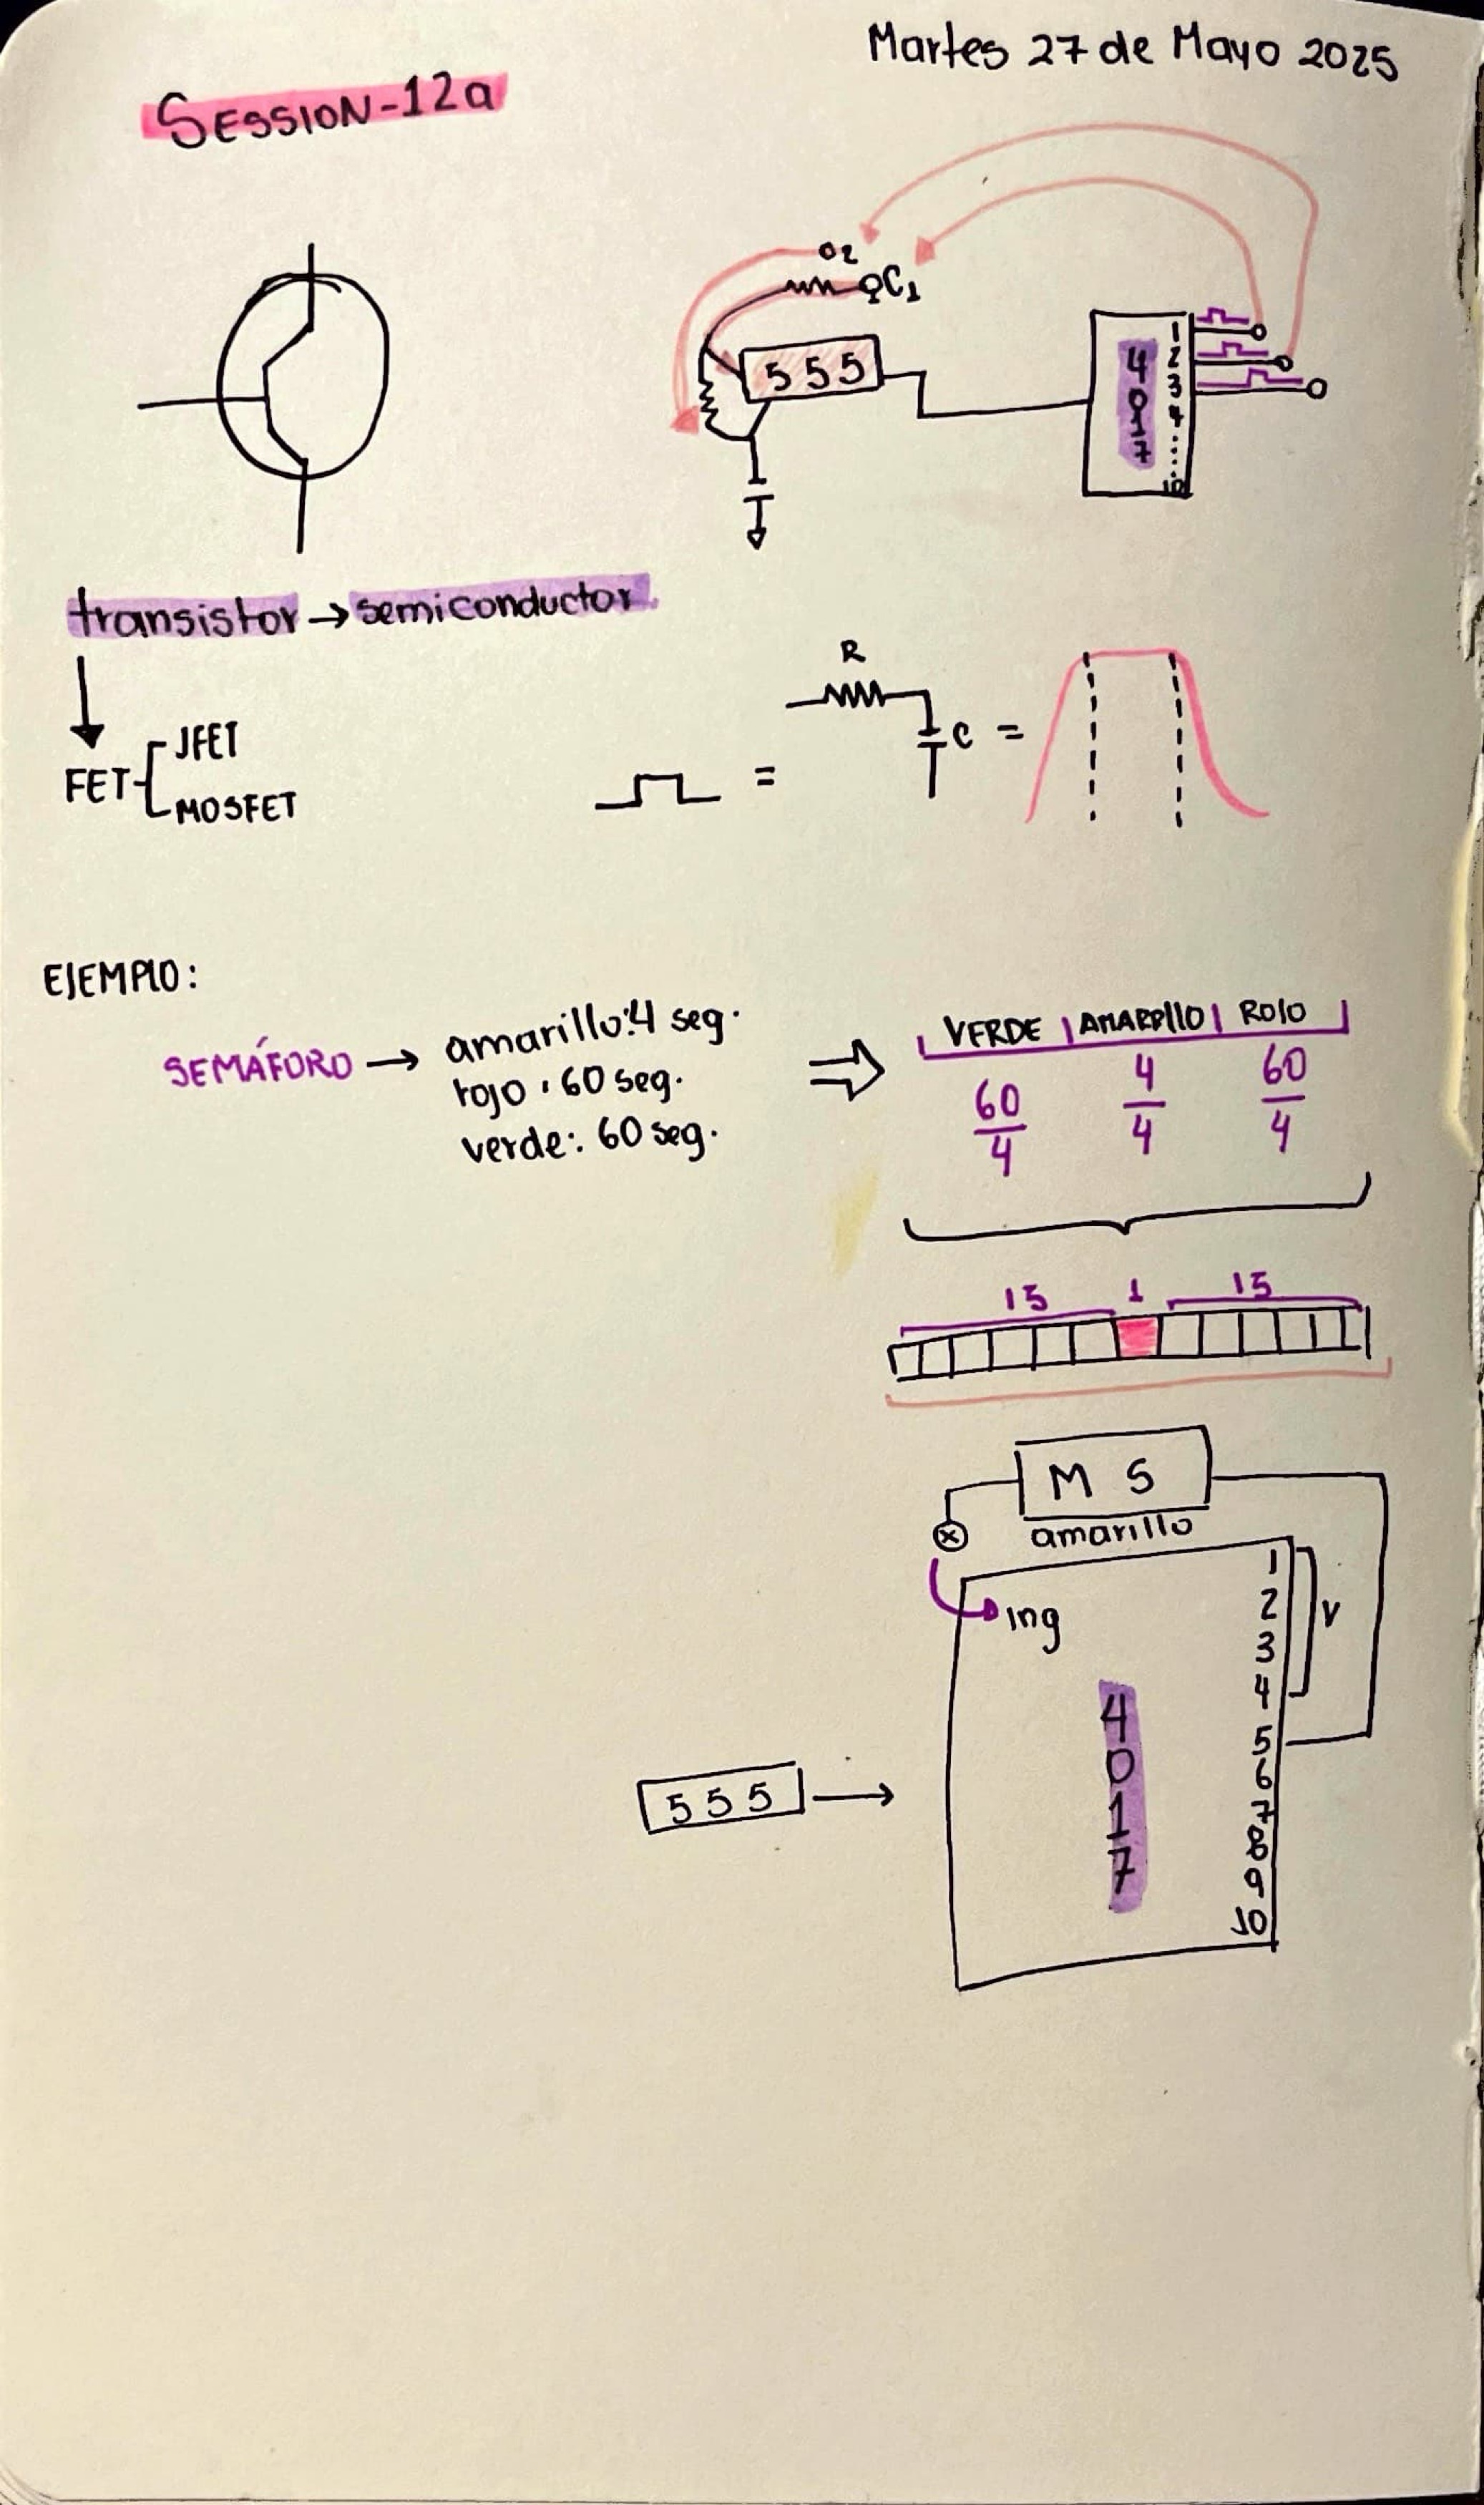 Martes 27 de Mayo 2025
SESSION-12a
o2
C1
555
4017
1
2
3
4
10
transistor → semiconductor
FET
JFET
MOSFET
R
=
C =
EJEMPLO:
SEMÁFORO → amarillo: 4 seg.
rojo: 60 seg.
verde: 60 seg.
⇒
VERDE | AMARILLO | ROJO
60/4 4/4 60/4
15 1 15
M S
amarillo
ing
1
2
3
4
V
5
6
7
8
9
10
4017
555 →